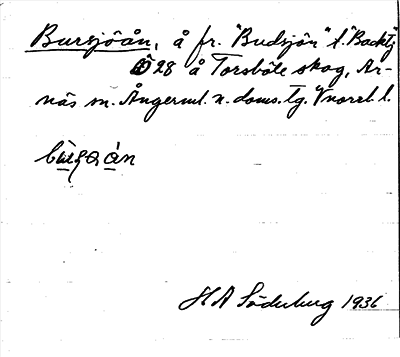 Bursjöån, å fr. "Budsjön" t. "Backtj"
Ö 28 å Torsböle skog, Ar-
näs sn. Ångerml. n. doms. tg. V norrl. l.
H A Söderberg 1936